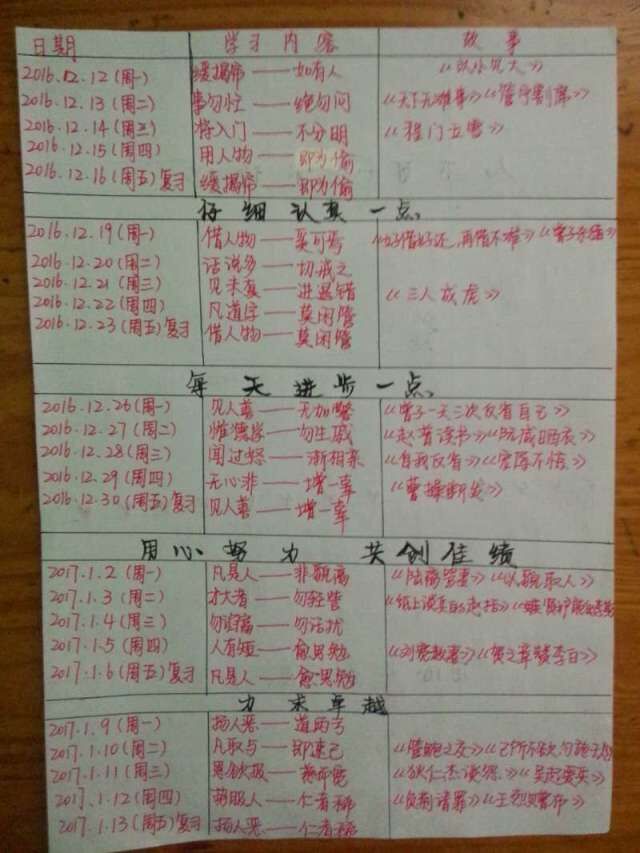 日期 学习内容 故事
2016.12.12(周一) 缓揭帘——如有人 《以小见大》
2016.12.13(周二) 事勿忙——绝勿问 《天下无难事》《管宁割席》
2016.12.14(周三) 将入门——不分明 《程门立雪》
2016.12.15(周四) 用人物——即为偷
2016.12.16(周五)复习 缓揭帘——即为偷
仔细认真一点
2016.12.19(周一) 借人物——奚可焉 《好借好还,再借不难》
2016.12.20(周二) 话说多——切戒之
2016.12.21(周三) 见未真——进退错 《三人成虎》
2016.12.22(周四) 凡道字——莫闲管
2016.12.23(周五)复习 借人物——莫闲管
每天进步一点
2016.12.26(周一) 见人善——无加警 《曾子一天三次反省自己》
2016.12.27(周二) 惟德学——勿生戚 《赵普读书》《阮咸晒衣》
2016.12.28(周三) 闻过怒——渐相亲 《自我反省》
2016.12.29(周四) 无心非——增一辜 《曹操断发》
2016.12.30(周五)复习 见人善——增一辜
用心努力 共创佳绩
2017.1.2(周一) 凡是人——非貌高 《以貌取人》
2017.1.3(周二) 才大者——勿轻訾 《纸上谈兵的赵括》
2017.1.4(周三) 勿谄富——勿话扰
2017.1.5(周四) 人有短——愈思勉 《刘宽教妻》《贺之章赞李白》
2017.1.6(周五)复习 凡是人——愈思勉
力求卓越
2017.1.9(周一) 扬人恶——道两亏
2017.1.10(周二) 凡取与——即速已 《管鲍之交》《己所不欲勿施于人》
2017.1.11(周三) 恩欲报 《狄仁杰
2017.1.12(周四) 仁者稀 《负荆请罪》
2017.1.13(周五)复习 扬人恶——仁者稀